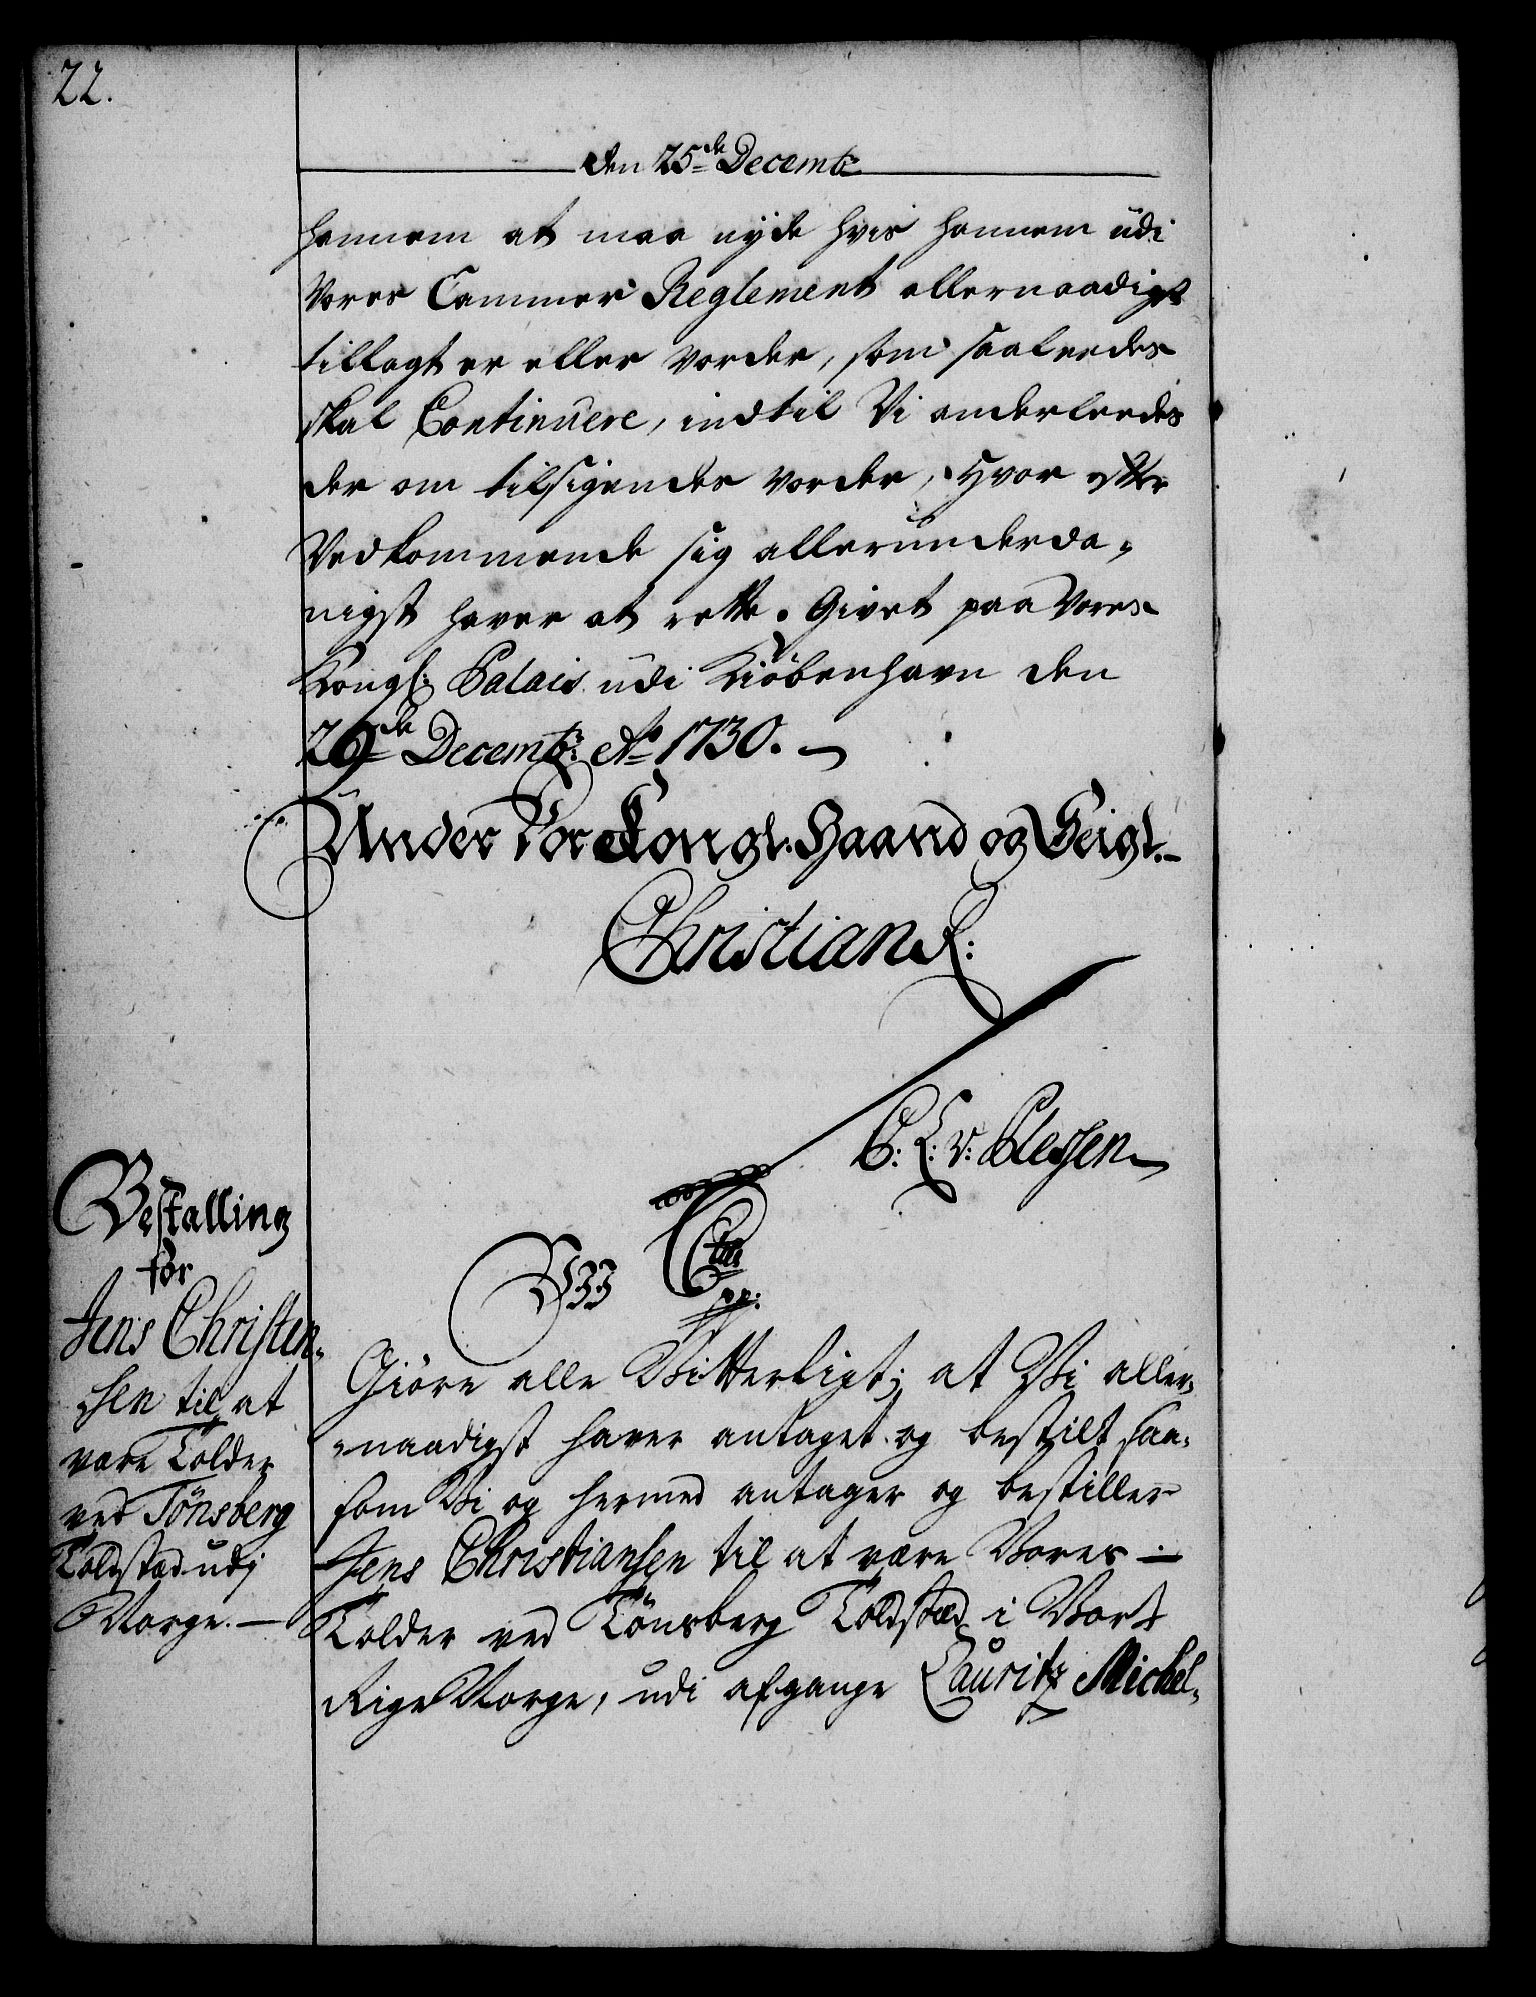 22.
den 25de Decembr:
hannem at maa nyde hvis hannem udi
Vores Cammer Reglement allernaadigst
tillagt er eller vorder, som saaleedes
skal Continuere, indtil Vi anderleedes
der om tilsigendes vorder, Hvor efter
Vedkommende sig allerunderda-
nigst haver at rette. Givet paa Vores
Kongl: Palais udi Kiöbenhavn den
26de Decembr: Ao 1730.
Under Vor Kongl. Haand og Seigl.
Christian R:
C: L: v: Plessen
Bestalling
for
Jens Christen-
sen til at
være Tolder
ved Tönsberg
Toldsted udj
Norge.
C 6te
pp:
Giöre alle Vitterligt; at Vi aller-
naadigst haver antaget og bestilt saa-
som Vi og hermed antager og bestiller
Jens Christiansen til at være Vores
Tolder ved Tönsberg Toldsted i Vort
Rige Norge, udi afgangne Lauritz Michel-